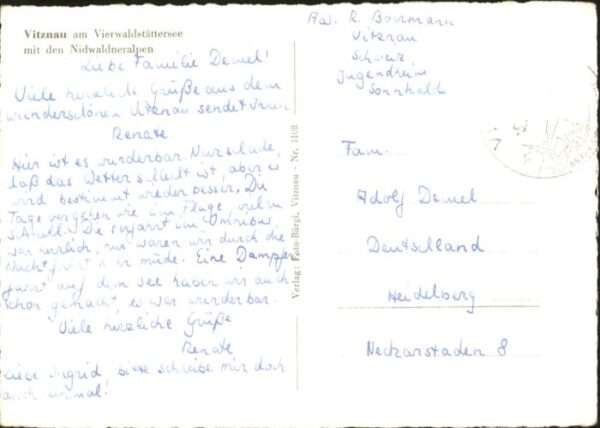 Vitznau am Vierwaldstättersee
mit den Nidwaldneralpen
Liebe Familie Demel!
Viele herzliche Grüße aus dem
wunderschönen Vitznau sendet Ihnen
Renate
Hier ist es wunderbar. Nur schade,
daß das Wetter schlecht ist, aber es
wird bestimmt wieder besser. Die
Tage vergehen wie im Fluge, viel zu
schnell. Die im Omnibus
war herrlich, nur waren wir durch die
müde. Eine Dampfer
fahrt auf dem See haben wir auch
schon gemacht, es war wunderbar.
Viele herzliche Grüße
Renate
Liebe Ingrid bitte schreibe mir doch
auch einmal!
Verlag: Foto-Bürgi, Vitznau - Nr. 1108
Abs. R. Bormann
Vitznau
Schweiz
Jugendheim
Sonnhalde
Fam.
Adolf Demel
Deutschland
Heidelberg
Neckarstaden 8